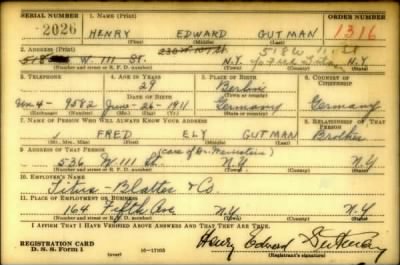 SERIAL NUMBER 1. NAME (Print) ORDER NUMBER
2026 HENRY EDWARD GUTMAN 1316
(First) (Middle) (Last)
2. ADDRESS (Print) 230 W 107 St. 518 W 111 St
518 W. 111 St. N.Y. N.Y.
(Number and street or R. F. D. number) (Town or county) (State)
3. TELEPHONE 4. AGE IN YEARS 5. PLACE OF BIRTH 6. COUNTRY OF CITIZENSHIP
29 Berlin
DATE OF BIRTH (Town or county)
4-9582 June-26-1911 Germany Germany
(Exchange) (Number) (Mo.) (Day) (Yr.) (State or country)
7. NAME OF PERSON WHO WILL ALWAYS KNOW YOUR ADDRESS 8. RELATIONSHIP OF THAT PERSON
FRED ELY GUTMAN Brother
(Mr., Mrs., Miss) (First) (Middle) (Last)
9. ADDRESS OF THAT PERSON (care of
536 W. 111 St. N.Y. N.Y.
(Number and street or R. F. D. number) (Town or county) (State)
10. EMPLOYER'S NAME
Titus-Blatter & Co.
11. PLACE OF EMPLOYMENT OR BUSINESS
164 Fifth Ave. N.Y. N.Y.
(Number and street or R. F. D. number) (Town) (County) (State)
I AFFIRM THAT I HAVE VERIFIED ABOVE ANSWERS AND THAT THEY ARE TRUE.
REGISTRATION CARD
D. S. S. Form 1 (over) 16-17105 Henry Edward Gutman
(Registrant's signature)